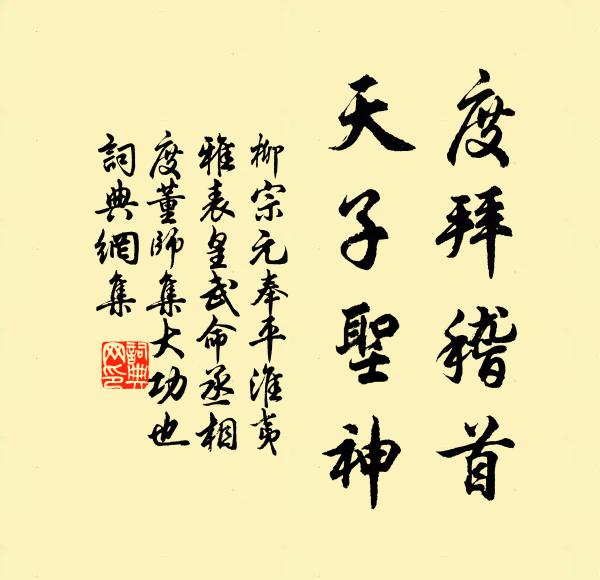 度拜稽首
天子聖神
柳宗元奉平淮夷
雅表皇武命丞相
度董師集大功也
詞典網集
詞典
网印